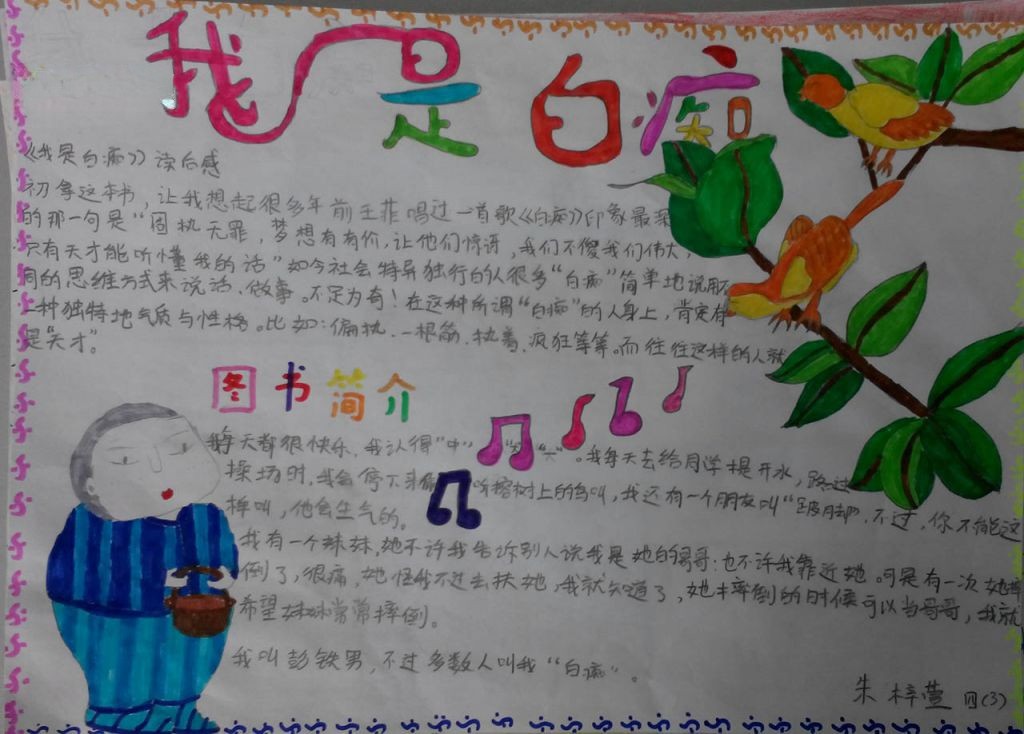 我是白痴
《我是白痴》读后感
初拿这本书，让我想起很多年前王菲唱过一首歌《白痴》印象最深
的那一句是“固执无罪，梦想有有价，让他们惊讶，我们不傻我们伟大，
只有天才能听懂我的话”如今社会特异独行的人很多“白痴”简单地说用不
同的思维方式来说话、做事。不足为奇！在这种所谓“白痴”的人身上，肯定有
一种独特地气质与性格。比如：偏执、一根筋、执着、疯狂等等。而往往这样的人就
是“天才”。
图书简介
每天都很快乐，我认得“中” “大”。我每天去给同学提开水，路过
操场时，我会停下来 听榕树上的鸟叫，我还有一个朋友叫“跛脚”，不过，你不能这
样叫，他会生气的。
我有一个妹妹，她不许我告诉别人说我是她的哥哥：也不许我靠近她。可是有一次她摔
倒了，很痛，她怪我不过去扶她，我就知道了，她摔倒的时候可以当哥哥，我就
希望妹妹常常摔倒。
我叫彭铁男，不过多数人叫我“白痴”。
朱梓萱 四(3)